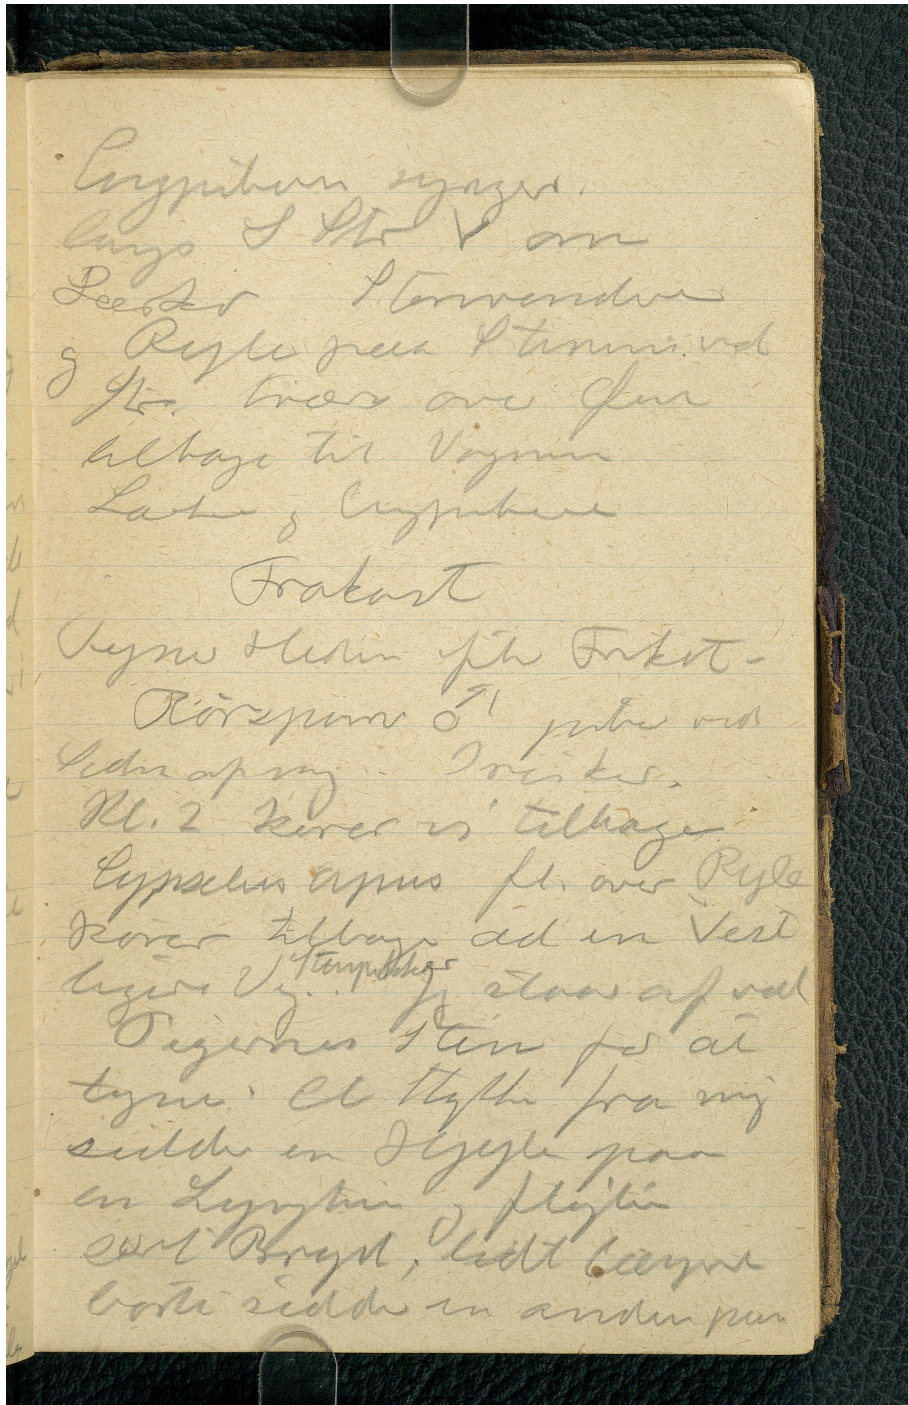 Engpiberen synger.
langs S Str V om
Læsker Stenvendere
og Ryle paa Stenene ved
Str. tværs over Øen
tilbage til Vognen
Lærke og Engpibere
Frokost
Tegner Heden efter Frokost -
Rörspurv ♂ piber ved
Siden af mig. Irisker.
Kl. 2 kører vi tilbage.
Cypselus apus fl. over Ryle
Kører tilbage ad en Vest
ligere Vej. Stenpikker Jeg staar af ved
Pigernes Sten for at
tegne. Et Stykke fra mig
sidder en Hjejle paa
en Lyngtue og fløjter
sort Bryst, lidt længere
borte sidder en anden paa